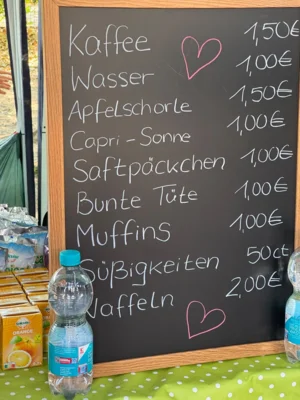 Kaffee 1,50€
Wasser 1,00€
Apfelschorle 1,50€
Capri-Sonne 1,00€
Saftpäckchen 1,00€
Bunte Tüte 1,00€
Muffins 1,00€
Süßigkeiten 50ct
Waffeln 2,00€
ORANGE